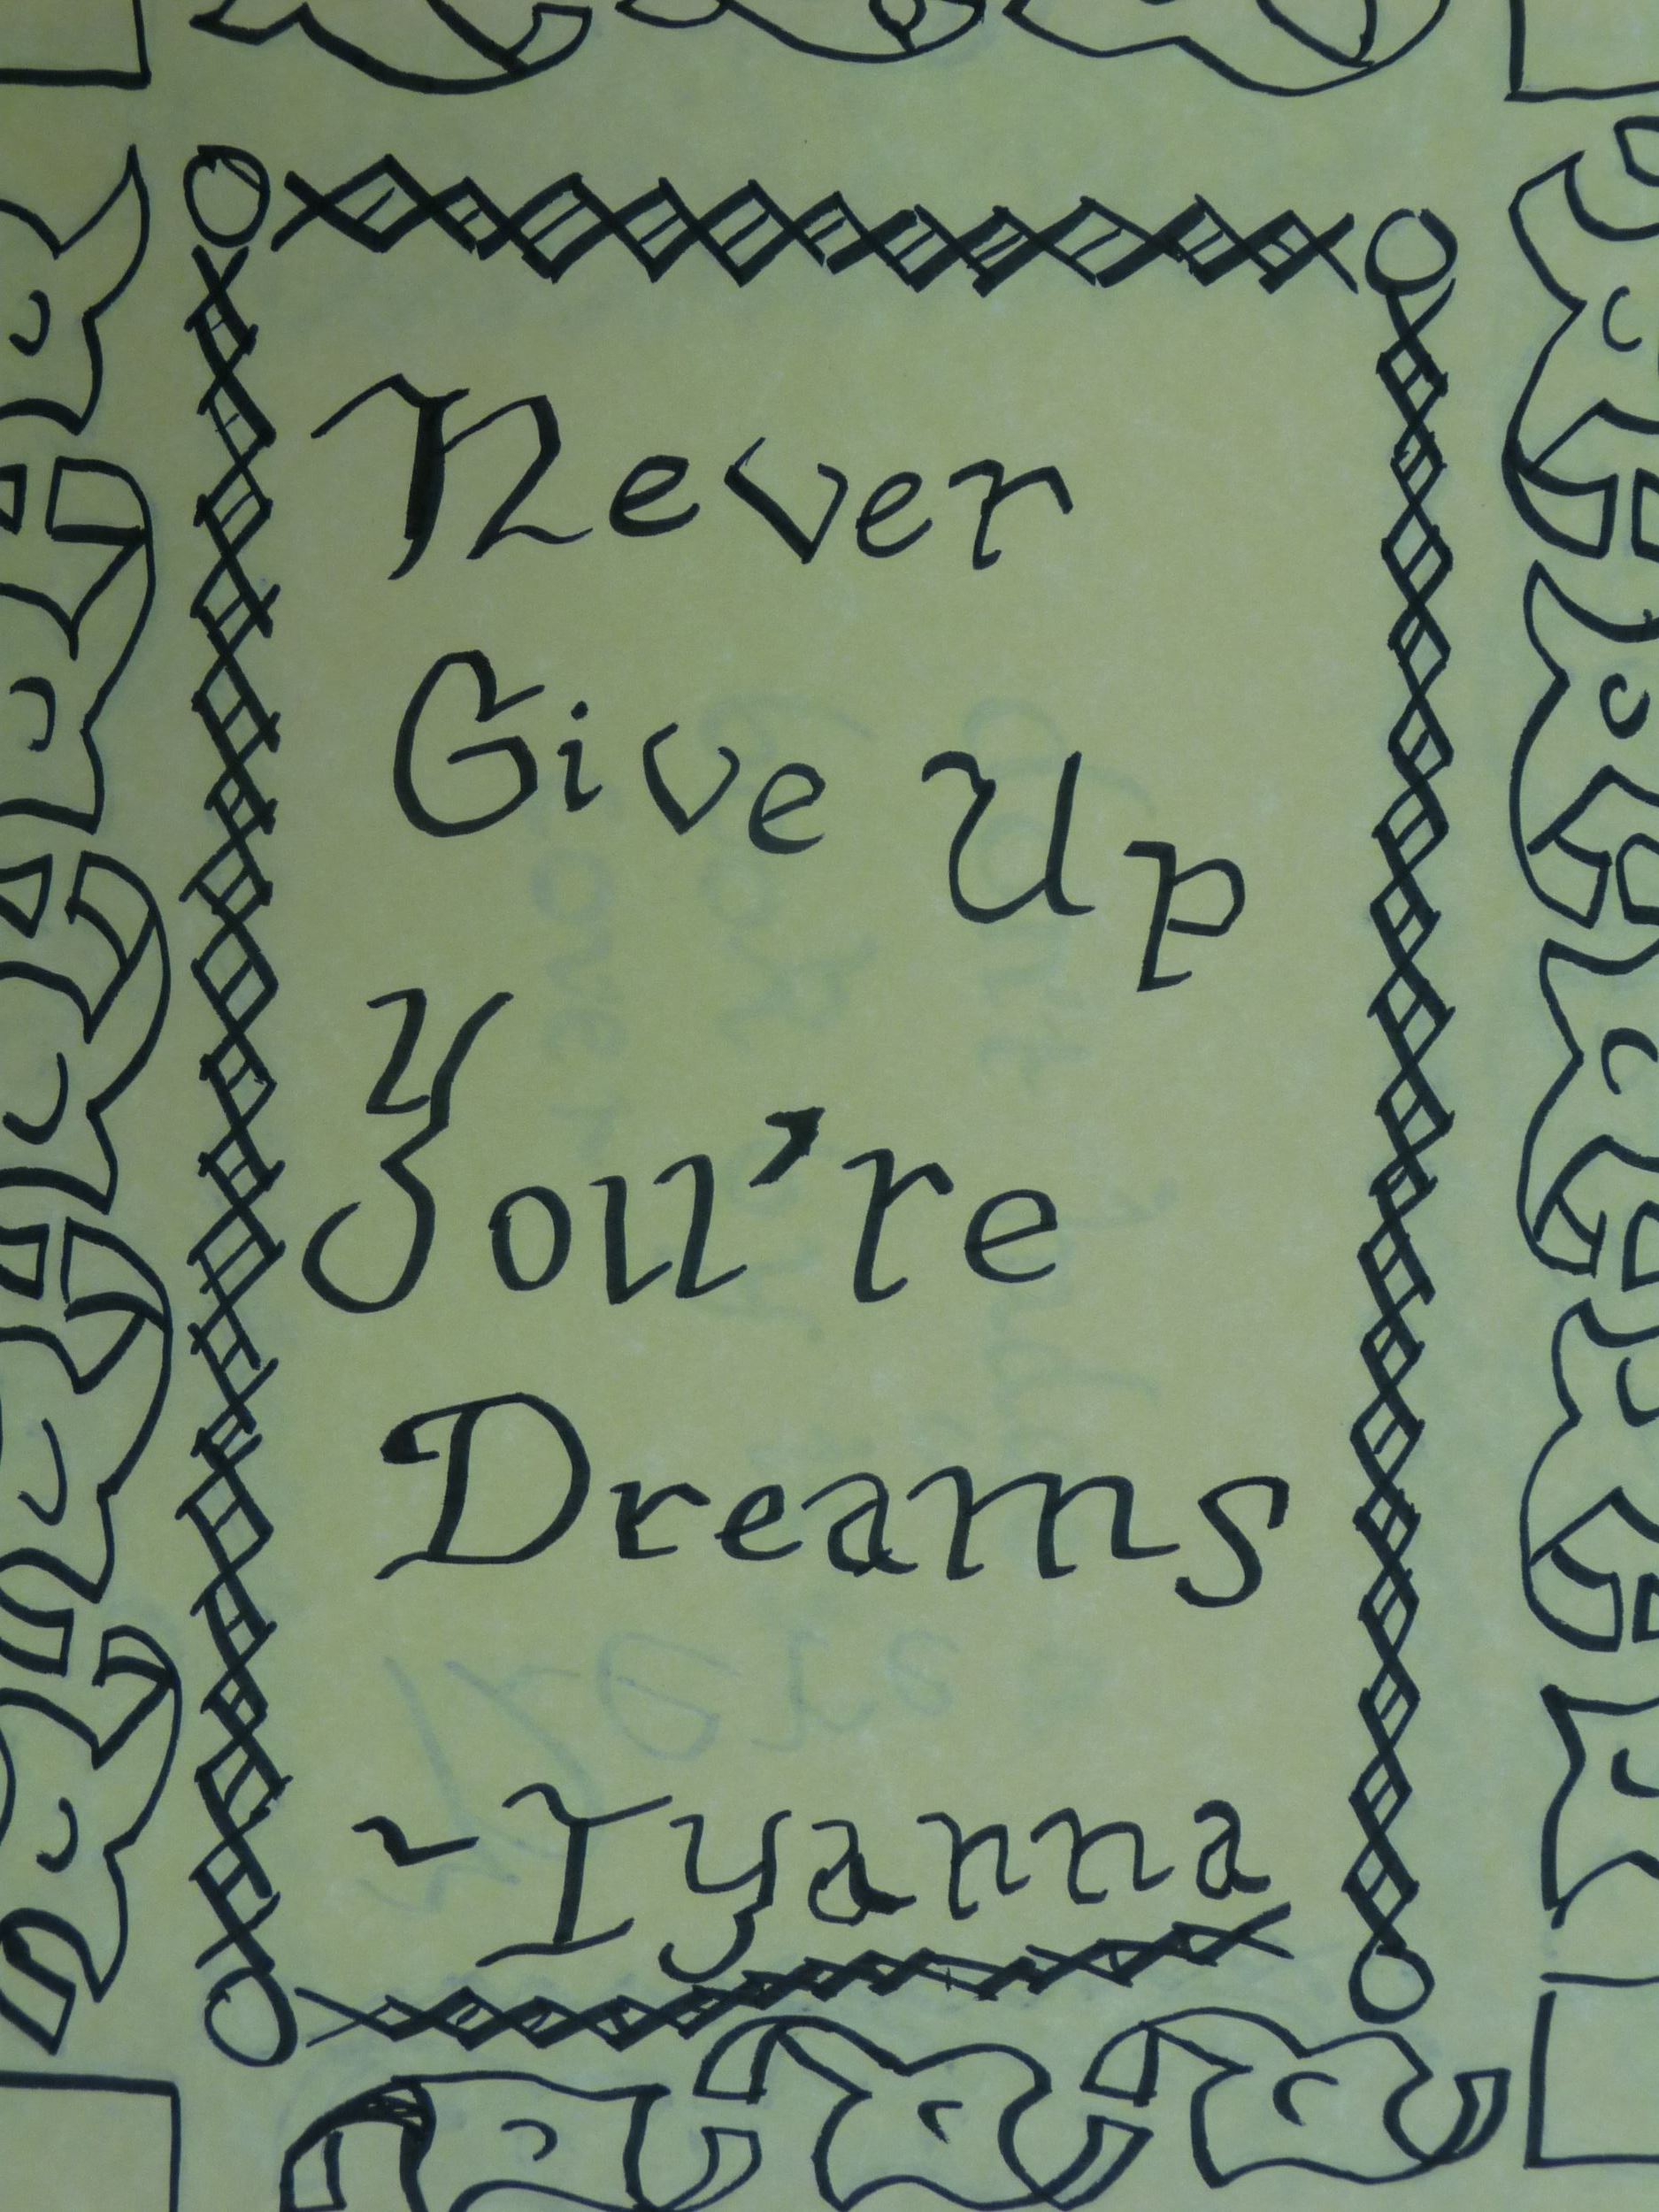 Never
Give Up
You're
Dreams
~Iyanna